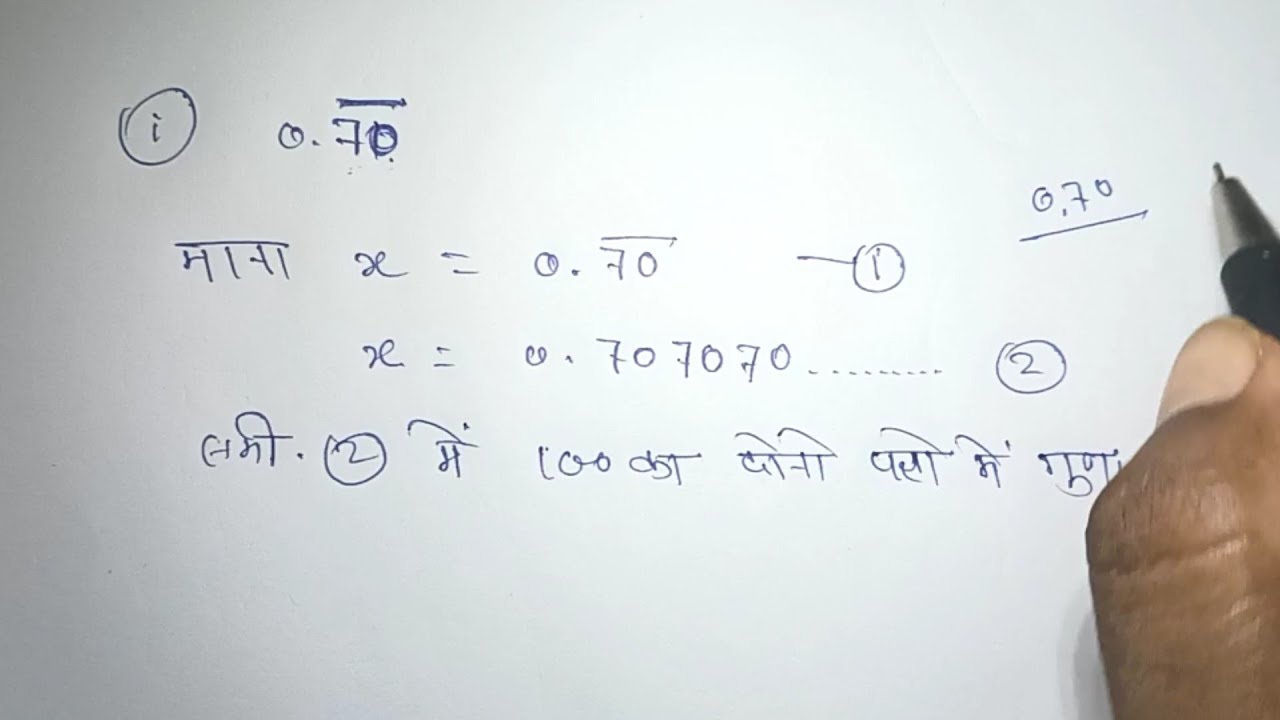 (i) 0.7̅0̅
0.70
माना x = 0.7̅0̅ —(1)
x = 0.707070......... (2)
समी. (2) में 100 का दोनो पक्षो में गुणा